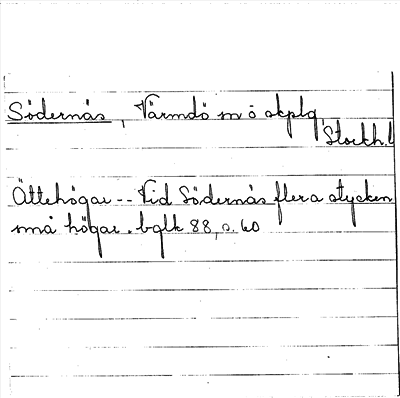 Södernäs, Värmdö sn ö skplg,
Stockh.l
Ättehögar -- Vid Södernäs flera stycken
små högar. bglk 88, s. 60